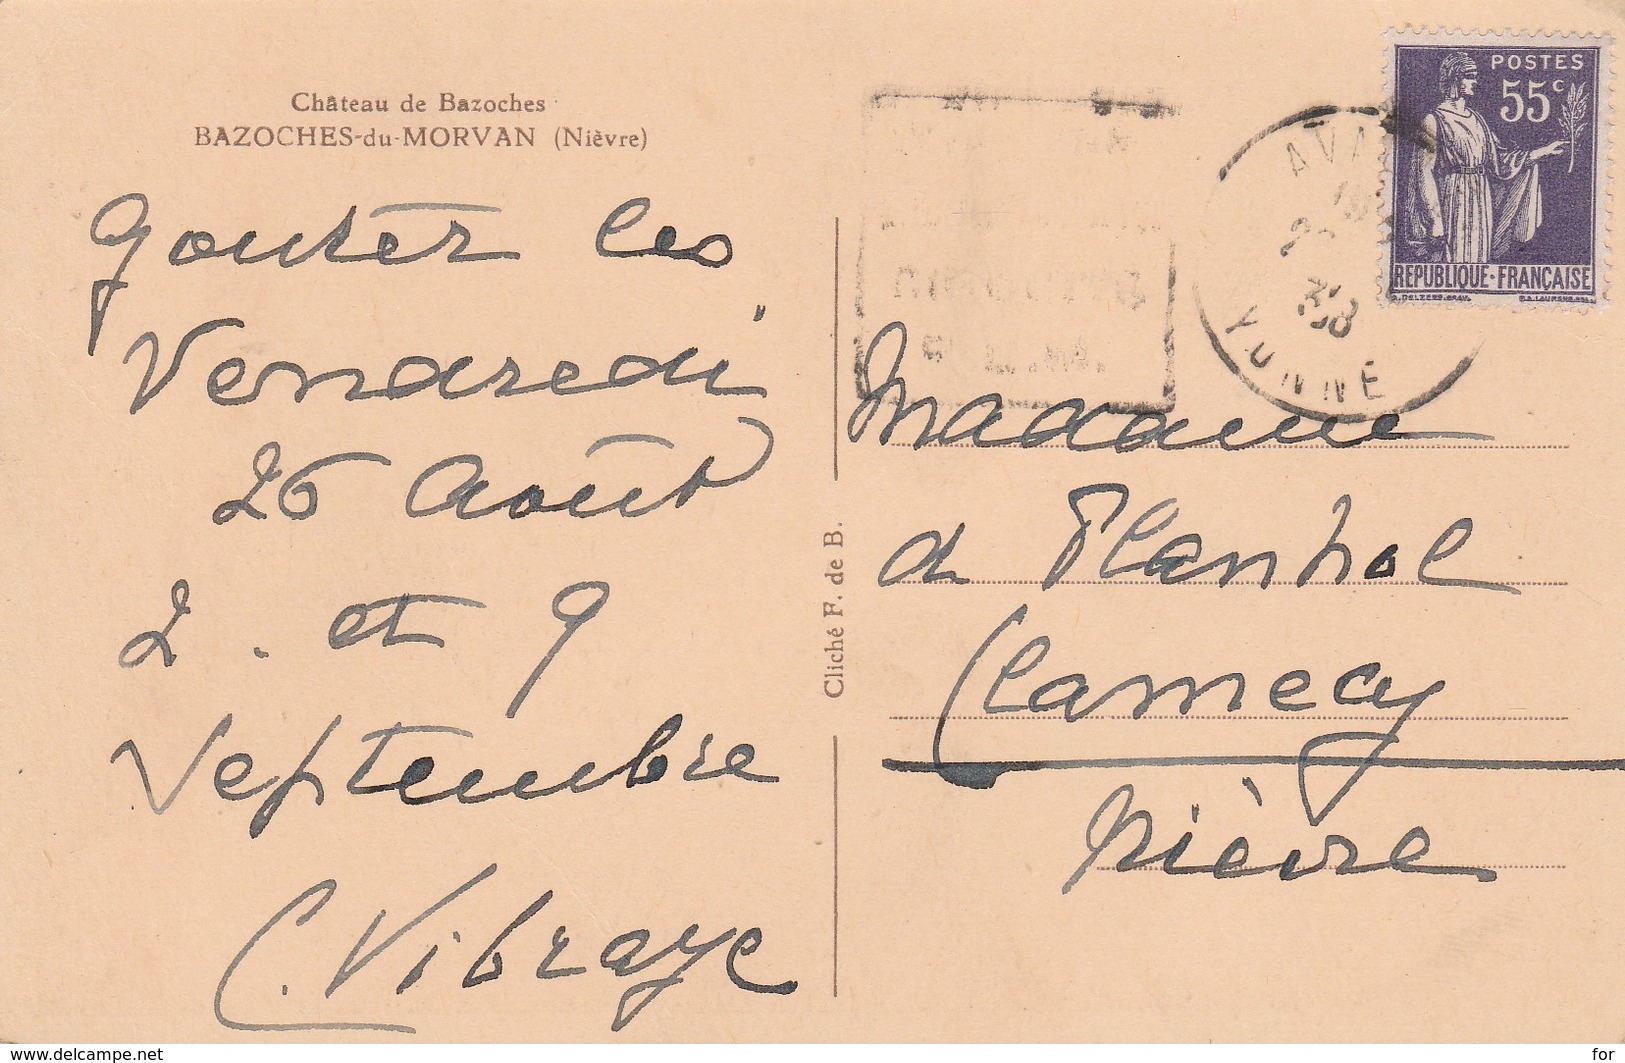 Château de Bazoches
BAZOCHES-du-MORVAN (Nièvre)
Gouter les
Vendredi
26 Août
2. et 9
Septembre
C. Vibraye
Cliché F. de B.
POSTES
55c
REPUBLIQUE-FRANÇAISE
AVA
YONNE
Madame
de Planhol
Clamecy
Nièvre
www.delcampe.net
for